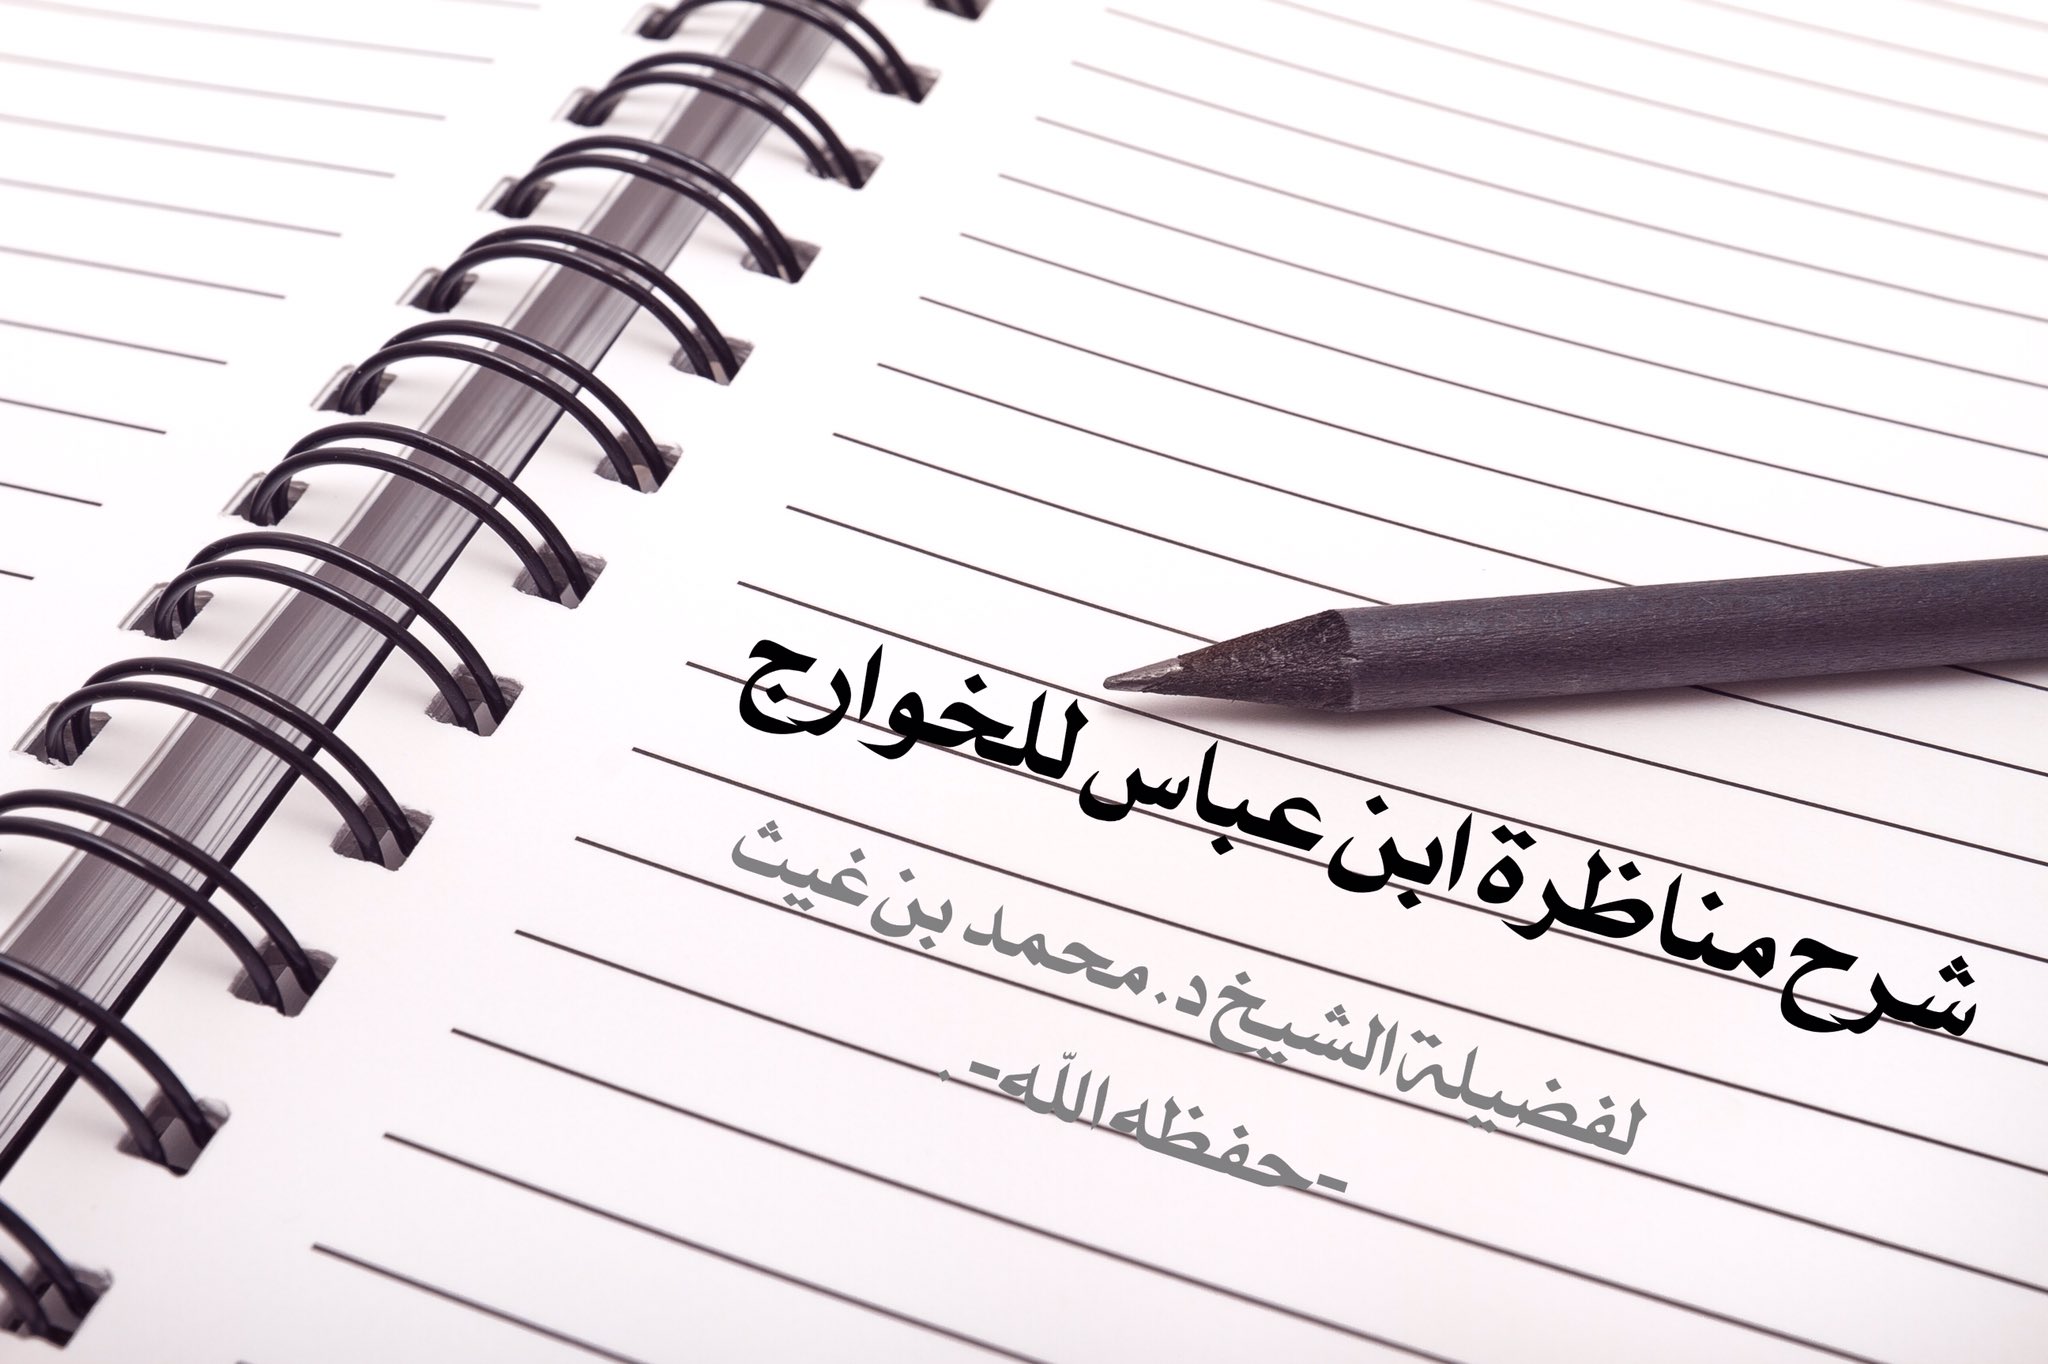 شرح مناظرة ابن عباس للخوارج
لفضيلة الشيخ د. محمد بن غيث
-حفظه الله- .